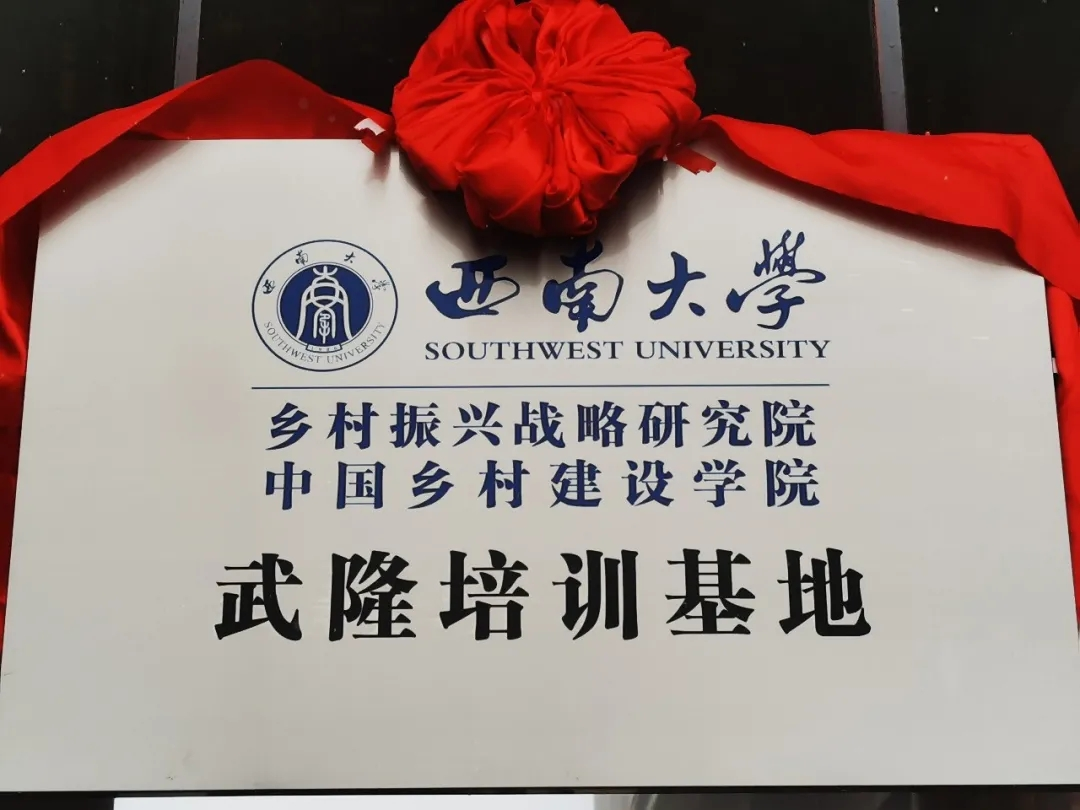 西南大学
SOUTHWEST UNIVERSITY
西南大學
SOUTHWEST UNIVERSITY
乡村振兴战略研究院
中国乡村建设学院
武隆培训基地